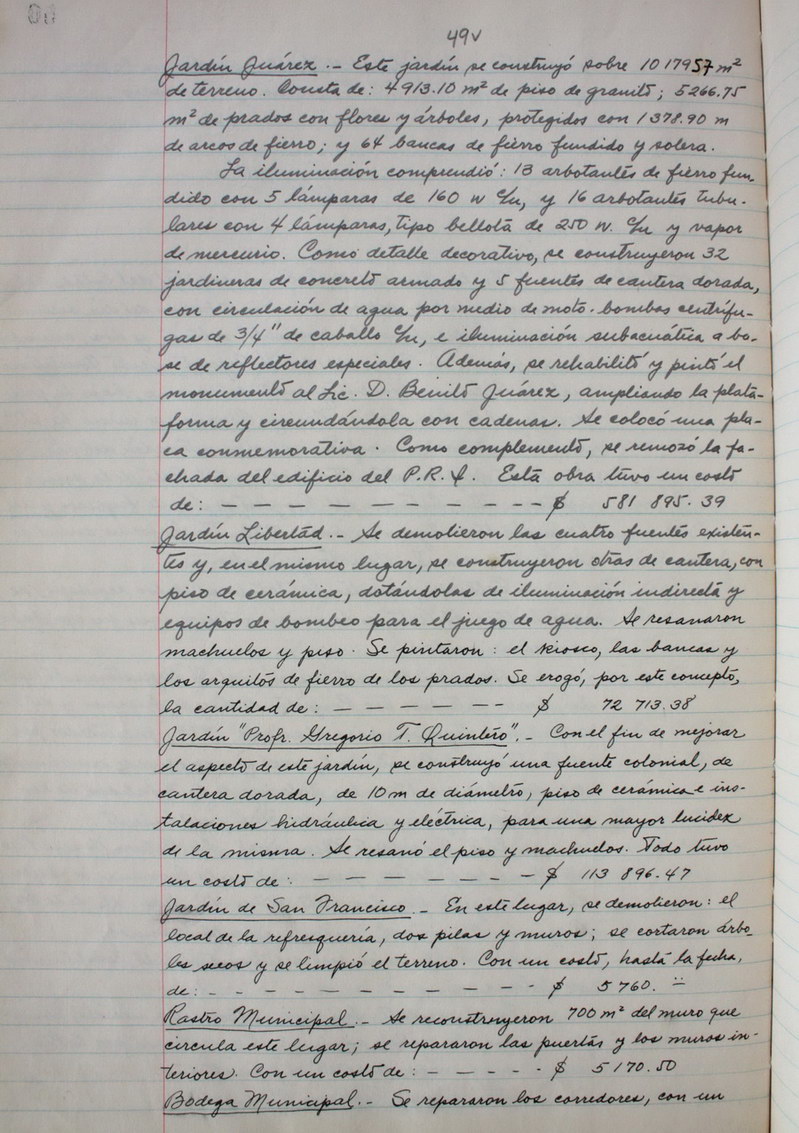 49v
Jardín Juárez.- Este jardín se construyó sobre 1017957 m²
de terreno. Consta de: 4913.10 m² de piso de granito; 5266.75
m² de prados con flores y árboles, protegidos con 1378.90 m
de arcos de fierro; y 64 bancas de fierro fundido y solera.
La iluminación comprendió: 13 arbotantes de fierro fun-
dido con 5 lámparas de 160 w c/u, y 16 arbotantes tubu-
lares con 4 lámparas, tipo bellota de 250 w. c/u y vapor
de mercurio. Como detalle decorativo, se construyeron 32
jardineras de concreto armado y 5 fuentes de cantera dorada,
con circulación de agua por medio de moto-bombas centrífu-
gas de 3/4" de caballo c/u, e iluminación subacuática a ba-
se de reflectores especiales. Además, se rehabilitó y pintó el
monumento al Lic. D. Benito Juárez, ampliando la plata-
forma y circundándola con cadenas. Se colocó una pla-
ca conmemorativa. Como complemento, se remozó la fa-
chada del edificio del P.R.I. Esta obra tuvo un costo
de: - - - - - - - - - - - - - $ 581 895.39
Jardín Libertad.- Se demolieron las cuatro fuentes existen-
tes y, en el mismo lugar, se construyeron otras de cantera, con
piso de cerámica, dotándolas de iluminación indirecta y
equipos de bombeo para el juego de agua. Se resanaron
machuelos y piso. Se pintaron: el kiosco, las bancas y
los arquitos de fierro de los prados. Se erogó, por este concepto,
la cantidad de: - - - - - - - $ 72 713.38
Jardín "Profr. Gregorio T. Quintero".- Con el fin de mejorar
el aspecto de este jardín, se construyó una fuente colonial, de
cantera dorada, de 10 m de diámetro, piso de cerámica e ins-
talaciones hidráulica y eléctrica, para una mayor lucidez
de la misma. Se resanó el piso y machuelos. Todo tuvo
un costo de: - - - - - - - - $ 113 896.47
Jardín de San Francisco.- En este lugar, se demolieron: el
local de la refresquería, dos pilas y muros; se cortaron árbo-
les secos y se limpió el terreno. Con un costo, hasta la fecha,
de: - - - - - - - - - - - - - $ 5 760. =
Rastro Municipal.- Se reconstruyeron 700 m² del muro que
circula este lugar; se repararon las puertas y los muros in-
teriores. Con un costo de: - - - - - $ 5170.50
Bodega Municipal.- Se repararon los corredores, con un